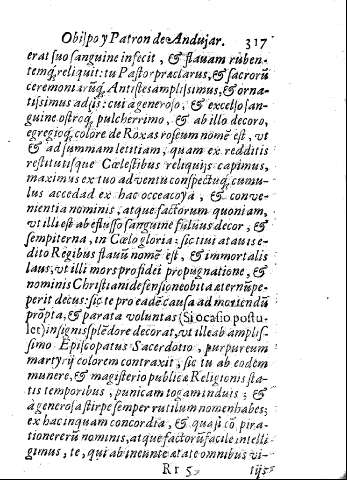 Obispo y Patron de Andujar. 317
erat suo sanguine infecit, & flauam ruben-
temq; reliquit: tu Pastor præclarus, & sacrorũ
ceremoniarũq; Antistes amplisimus, & orna-
tissimus adsis: cui a generoso, & excelso san-
guine ostroq; pulcherrimo, & ab illo decoro,
egregioq; colore de Roxas roseum nomẽ est, vt
& ad summam letitiam, quam ex redditis
restitutisque Cœlestibus reliquijs capimus,
maximus ex tuo aduentu conspectuq; cumu-
lus accedad ex hac occeacoya, & conue-
nientia nominis, atque factorum quoniam,
vt illi est ab effusso sanguine fuluus decor, &
sempiterna, in Cœlo gloria: sic tui atauis e-
dito Regibus flauũ nomẽ est, & immortalis
laus, vt illi mors pro fidei propugnatione, &
nominis Christiani defensione obita æternũ pe-
perit decus: sic te pro eadẽ causa ad mortendũ
prõpta, & parata voluntas (Si ocasio postu-
let) insignis splẽdore decorat, vt ille ab amplis-
simo Episcopatus Sacerdotio, purpureum
martyrij colorem contraxit, sic tu ab eodem
munere, & magisterio publicæ Religionis sta-
tis temporibus, punicam togam induis; &
a generosa stirpe semper rutilum nomen habes;
ex hac inquam concordia, & quasi cõpira-
tionererũ nominis, atque factorũ facile intelli
gimus, te, qui ab ineunte ætate omnibus vi-
Rr 5 tijs